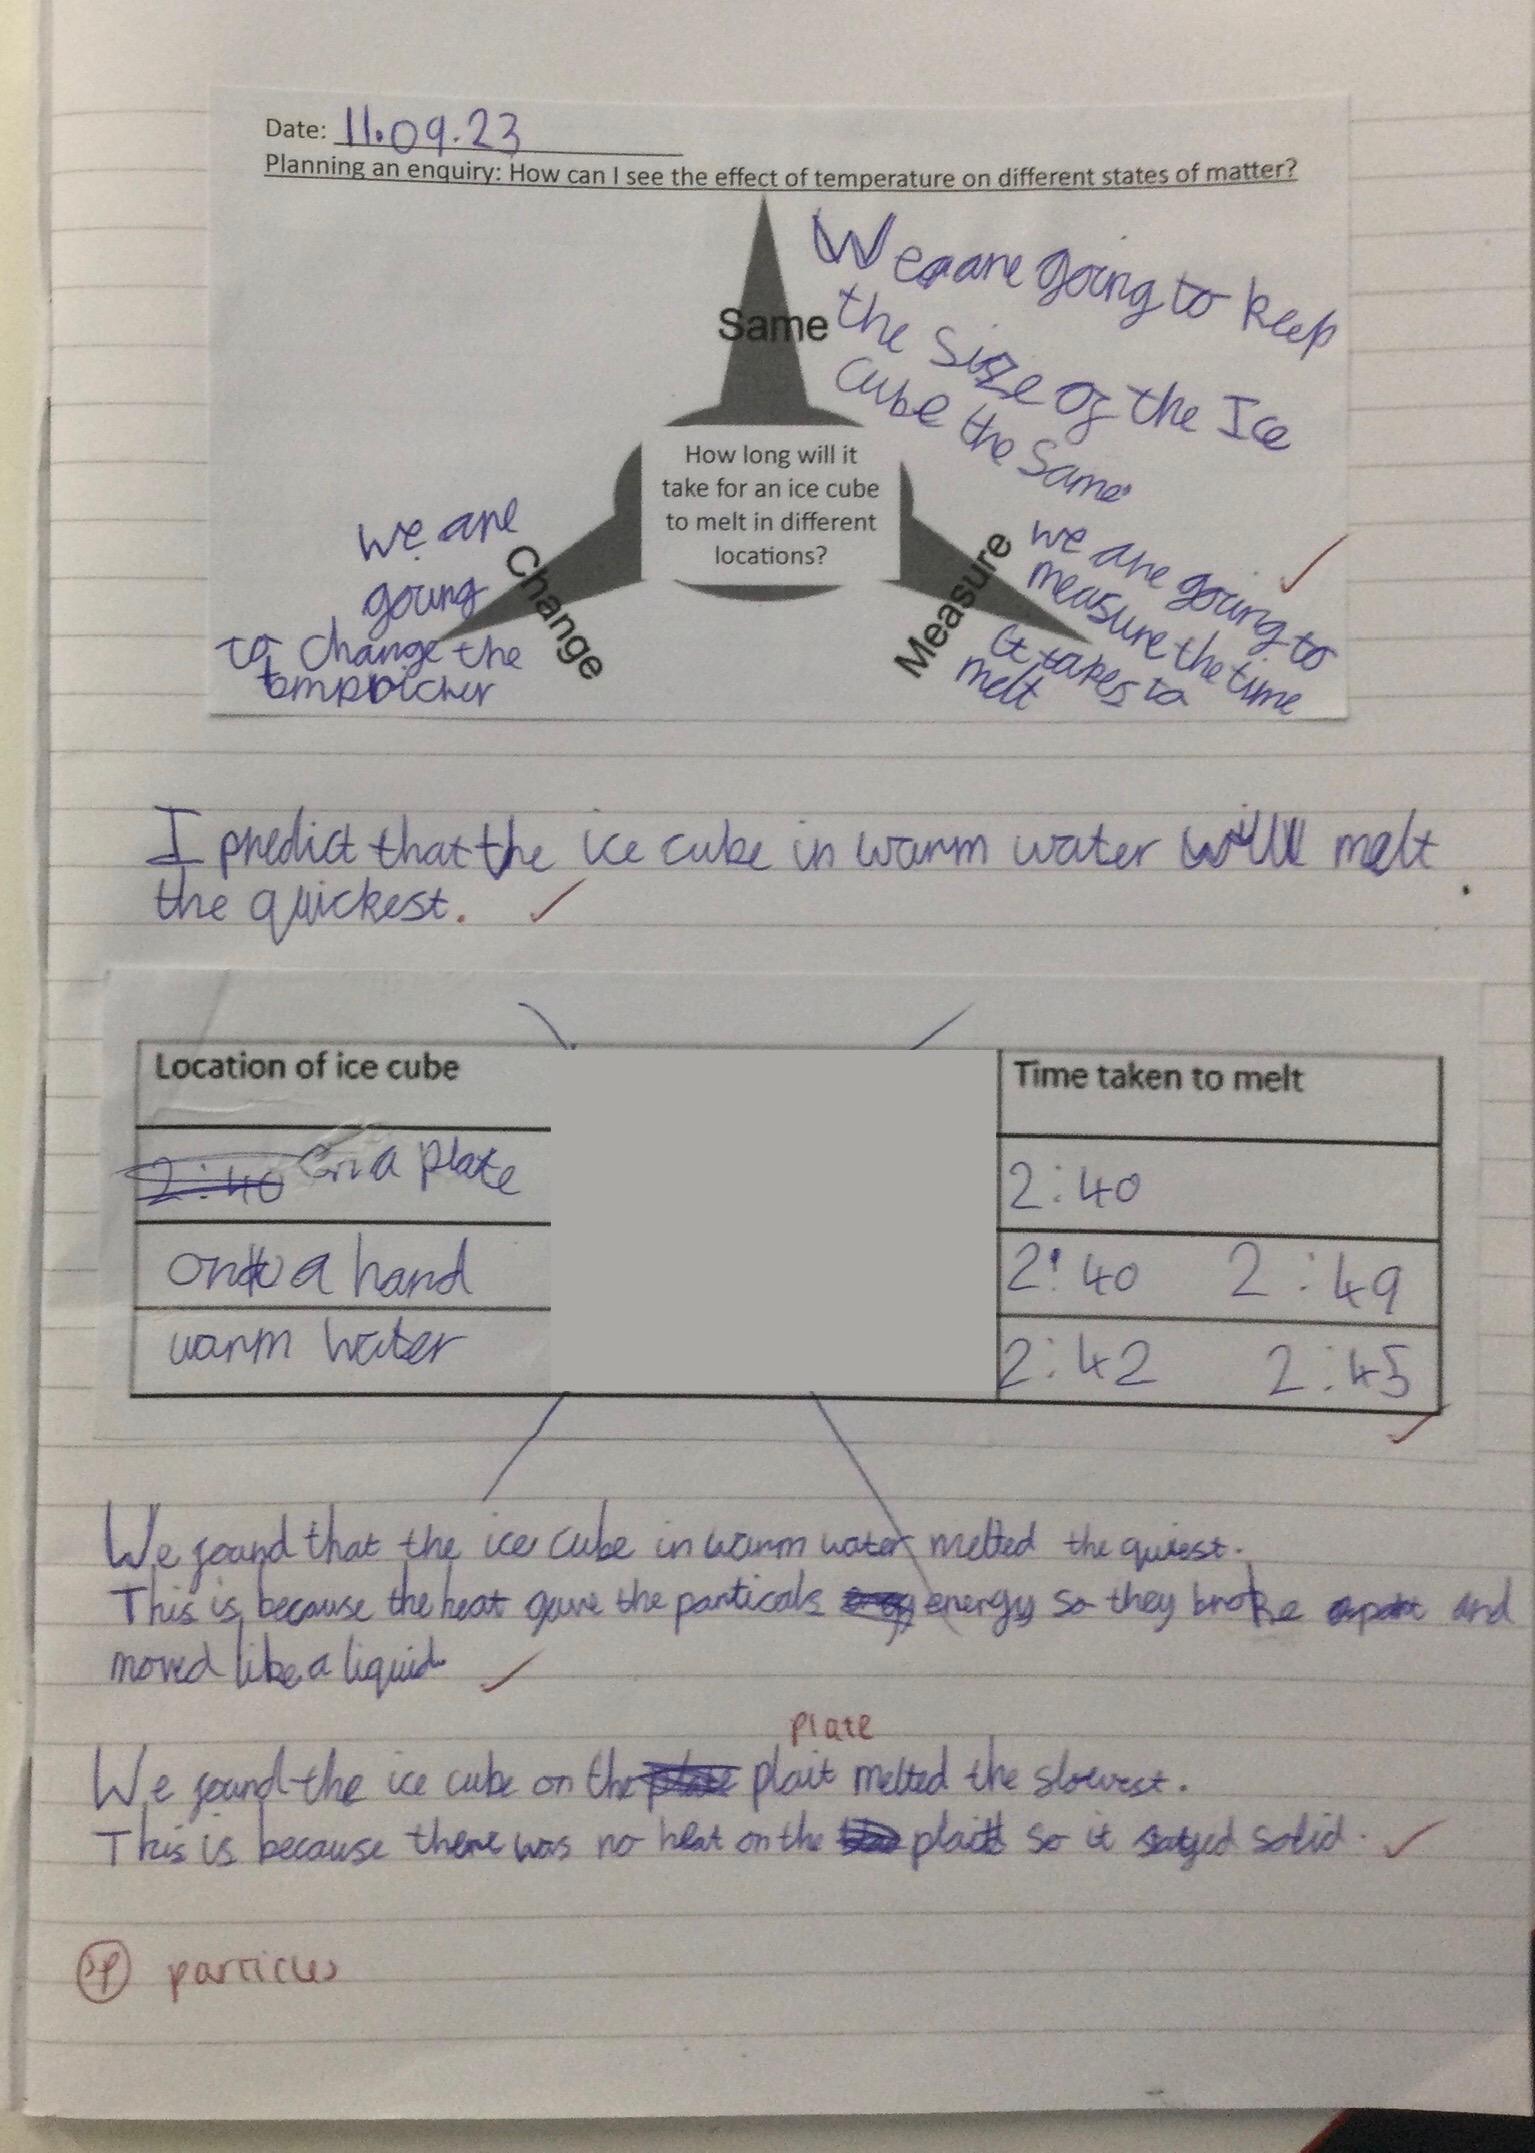 Date: 11.09.23
Planning an enquiry: How can I see the effect of temperature on different states of matter?
Same
We are going to keep
the size of the Ice
cube the same
How long will it
take for an ice cube
to melt in different
locations?
Change
we are
going
to change the
Measure
we are going to
measure the time
it takes to
melt
I predict that the ice cube in warm water will melt
the quickest.
Location of ice cube
Time taken to melt
2:40 on a plate
2:40
a hand
2:40 2:49
warm water
2:42 2:45
We found that the ice cube in warm water melted the quiest.
This is because the heat gave the particals energy so they broke apart and
moved like a liquid
plate
We found the ice cube on the plate plait melted the slowest.
This is because there was no heat on the plait so it satyed solid.
sp particles